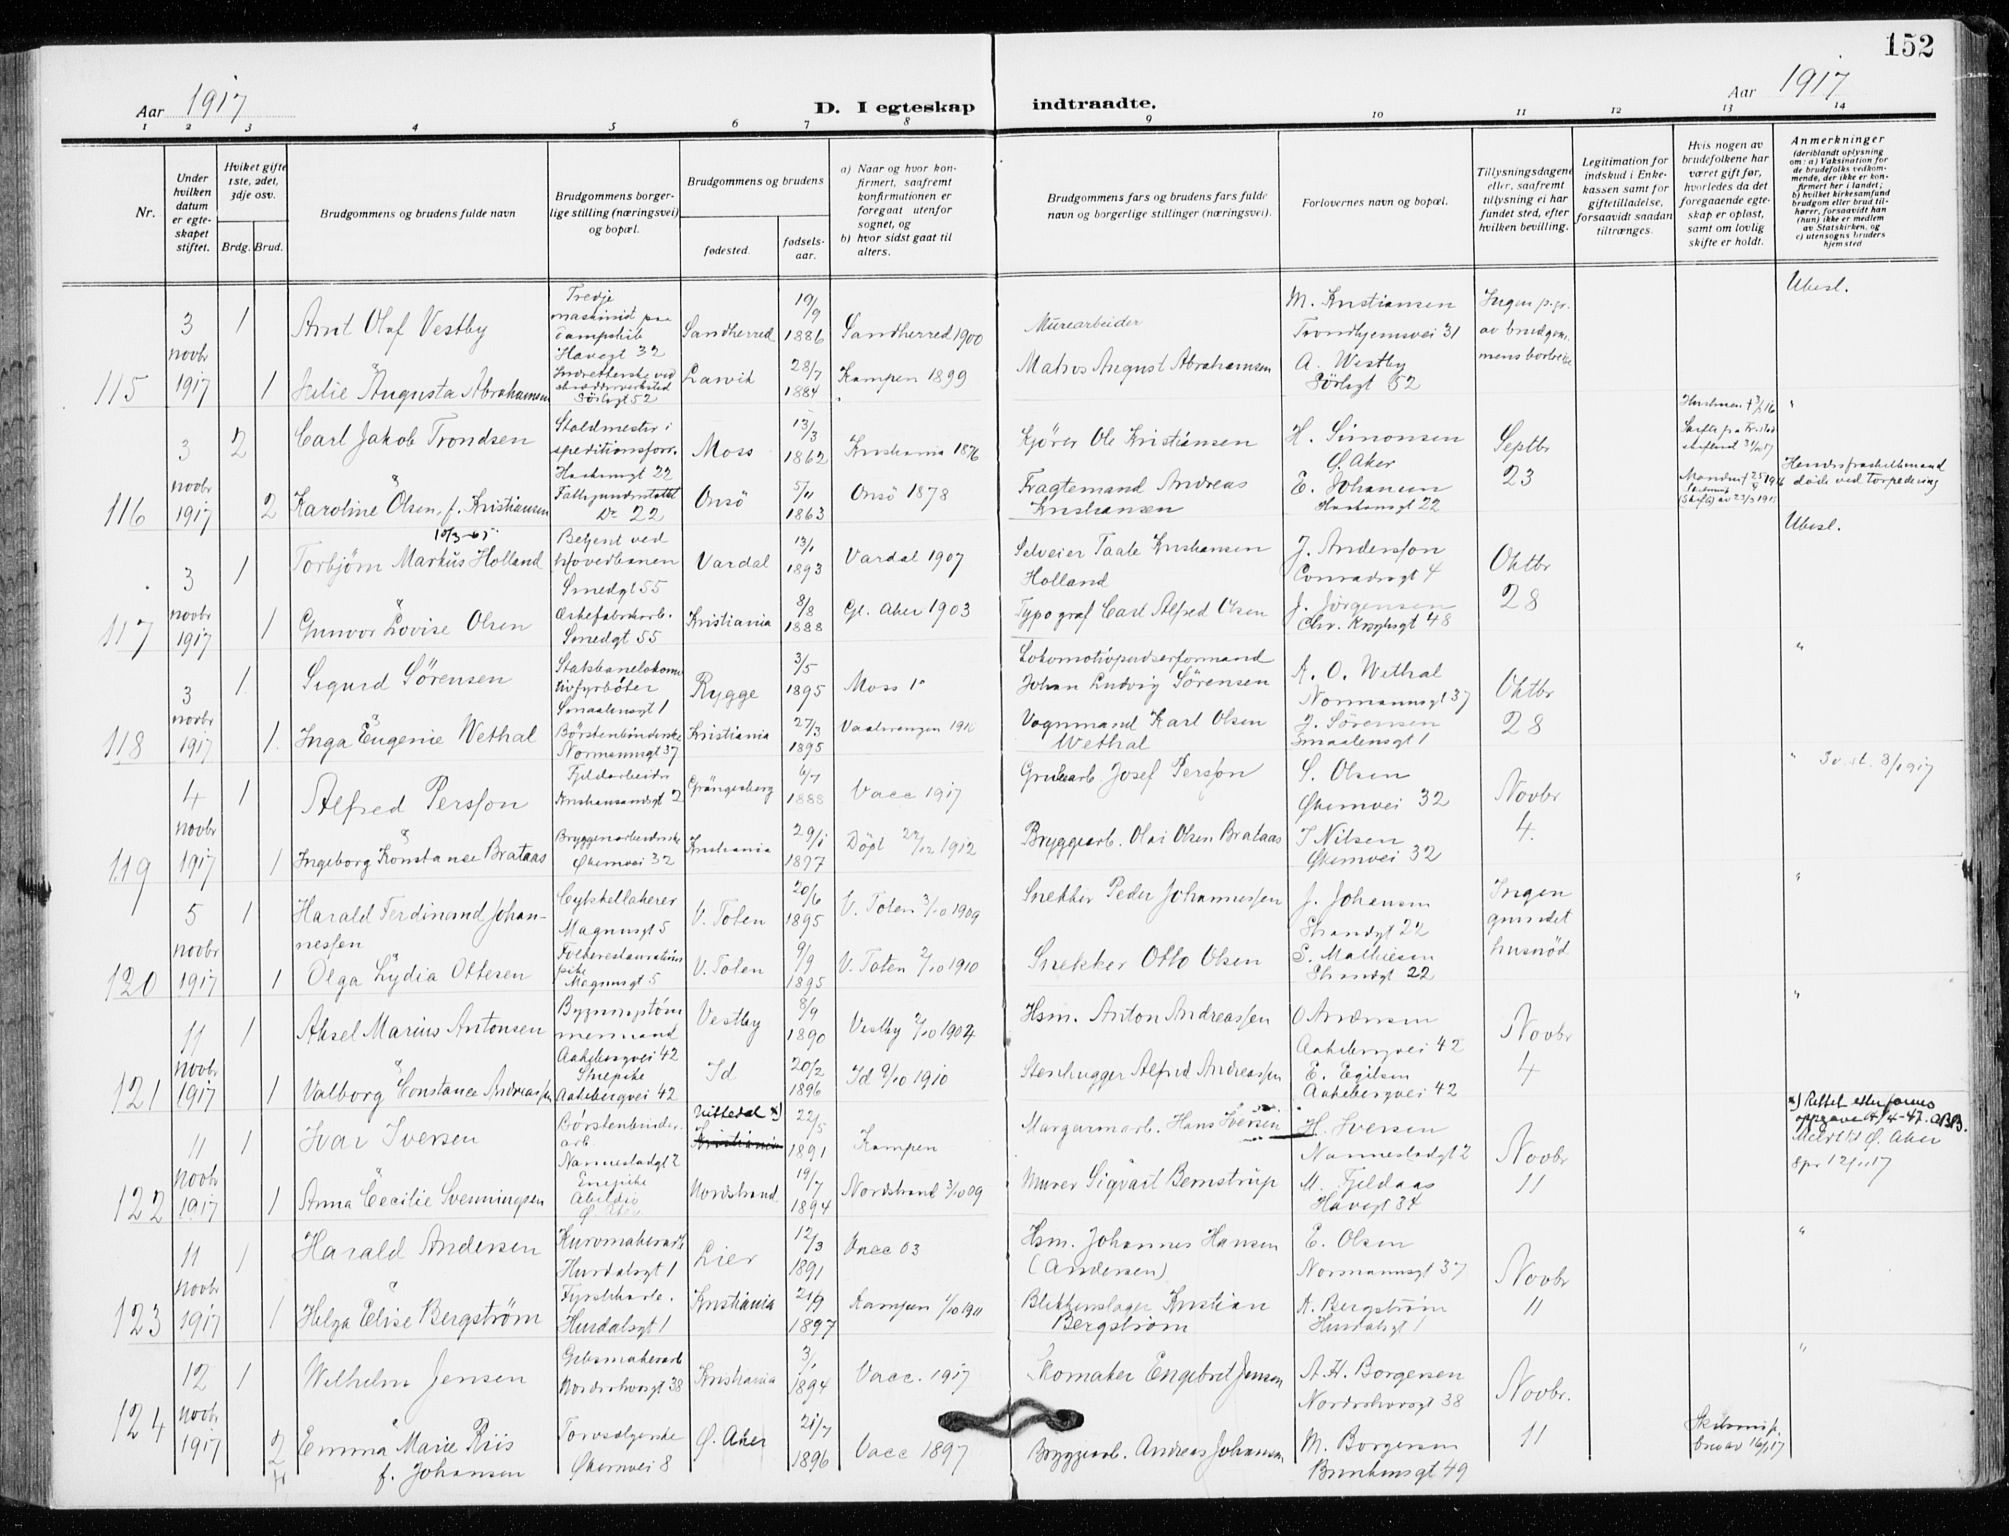 152
Aar 1917
D. I egteskap indtraadte.
Aar 1917
1 2 3 4 5 6 7 8 9 10 11 12 13 14
Nr.
Under hvilken datum er egteskapet stiftet.
Hviket gifte 1ste, 2det, 3dje osv.
Brdg. Brud.
Brudgommens og brudens fulde navn
Brudgommens borgerlige stilling (næringsvei) og bopæl.
Brudgommens og brudens
fødested.
fødselsaar.
a) Naar og hvor konfirmert, saafremt konfirmationen er foregaat utenfor sognet, og
b) hvor sidst gaat til alters.
Brudgommens fars og brudens fars fulde navn og borgerlige stillinger (næringsvei).
Forlovernes navn og bopæl.
Tillysningsdagene eller, saafremt tillysning ei har fundet sted, efter hvilken bevilling.
Legitimation for indskud i Enkekassen samt for giftetilladelse, forsaavidt saadan tiltrænges.
Hvis nogen av brudefolkene har været gift før, hvorledes da det foregaaende egteskap er opløst, samt om lovlig skifte er holdt.
Anmerkninger
(deriblandt oplysning om: a) Vaksination for de brudefolks vedkommende, der ikke er konfirmert her i landet; b) hvilket kirkesamfund brudgom eller brud tilhører, forsaavidt han (hun) ikke er medlem av Statskirken, og c) utensogns bruders hjemsted
115
3 novbr 1917
1 Arnt Olaf Vestby
Tredje maskinist paa
Havegt 32
Sandherred 19/9 1886 Sandherred 1900
Murearbeider
M. Kristiansen
Trondhjemsvei 31
Ingen p.gr. av brudgommens
Ubesl.
1 Julie Augusta Abrahamsen
Sörligt 52
Larvik 28/7 1884 Kampen 1899
Matros August Abrahamsen
A. Westby
Sörligt 52
116
3 novbr 1917
2 Carl Jakob Trondsen
Staldmester i speditionsforr.
22
Moss 13/3 1862 Kristiania 1876
Kjører Ole Kristiansen
H. Simonsen
Ø. Aker
Septbr 23
2 Karoline Olsen, f. Kristiansen
22
Onsö 5/11 1863 Onsö 1878
Fragtemand Andreas Kristiansen
E. Johansen
22
døde ved Torpedering
117
3 novbr 1917
10/3-65
1 Torbjørn Markus Holland
Betjent ved Hovedbanen
Smedgt 55
Vardal 13/1 1893 Vardal 1907
Selveier Taale Kristiansen Holland
J. Andersson
Conradisgt 4
Oktbr 28
Ubesl.
1 Gunvor Lovise Olsen
Æskefabrikarb.
Smedgt 55
Kristiania 8/8 1888 Gl. Aker 1903
Typograf Carl Alfred Olsen
J. Jörgensen
Chr. Kroghsgt 48
118
3 novbr 1917
1 Sigurd Sörensen
Smaalensgt 1
Rygge 3/5 1895 Moss 1
Lokomotivpudserformand
Johan Ludvig Sörensen
A. O. Wethal
Normannsgt 37
Oktbr 28
"
1 Inga Eugenie Wethal
Børstenbinderske
Normannsgt 37
Kristiania 27/3 1895 Vaalerengen 1910
Vognmand Karl Olsen Wethal
J. Sörensen
Smaalensgt 1
119
4 novbr 1917
1 Alfred Persson
Fjeldarbeider
Kristiansandsgt 2
Grängesberg 6/7 1888 Vacc 1917
Grubearb. Josef Persson
S. Olsen
Økernvei 32
Novbr 4.
"
1 Ingeborg Konstance Brataas
Bryggeriarbeiderske
Økernvei 32
Kristiania 29/1 1897 Döpt 29/12 1912
Bryggearb. Olai Olsen Brataas
T Nilsen
Økernvei 32
120
5 novbr 1917
1 Harald Ferdinand Johannessen
Cykkellakerer
Magnusgt 5
V. Toten 20/6 1895 V. Toten 3/10 1909
Snekker Peder Johannessen
J. Johansen
Strandgt 22
Ingen grundet husnød
"
1 Olga Lydia Ottesen
Magnusgt 5
V. Toten 9/9 1895 V. Toten 2/10 1910
Snekker Otto Olsen
S. Mathiesen
Strandgt 22
121
11 novbr 1917
1 Aksel Marius Antonsen
Bygningstømmermand
Aakebergvei 42
Vestby 8/9 1890 Vestby 2/10 1904
Hsm. Anton Andreassen
O Andersen
Aakebergvei 42
Novbr 4
"
1 Valborg Constance Andreassen
Aakebergvei 42
Id 20/2 1896 Id 9/10 1910
Stenhugger Alfred Andreassen
E. Egilsen
Aakebergvei 42
122
11 novbr 1917
1 Ivar Iversen
Børstenbinderarb.
Nannestadgt 2
Nittedal x)
Kristiania 22/5 1891 Kampen
Margarinarb. Hans Iversen
H. Iversen
Nannestadgt 2
Novbr 11
x) Rettet efter
1 Anna Cecilie Svenningsen
Nordstrand 19/7 1894 Nordstrand 3/10 09
Murer Sigvart Bernstrup
M. Fjeldaas
Havegt 34
123
11 novbr 1917
1 Harald Andersen
Kurvmakerarb
Hurdalsgt 1
Lier 12/3 1891 Vacc 03
Hsm. Johannes Hansen
(Andersen)
E. Olsen
Normannsgt 37
Novbr 11
"
1 Helga Elise Bergström
Hurdalsgt 1
Kristiania 21/9 1897 Kampen 1/10 1911
Blikkenslager Kristian Bergström
A. Bergström
Hurdalsgt 1
124
12 novbr 1917
1 Wilhelm Jensen
Gibsmakerarb
38
Kristiania 3/1 1894 Vacc. 1917
Skomaker Engebret Jensen
A. H. Borgersen
38
Novbr. 11
"
2 Emma Marie Riis
f. Johansen
Økernvei 8
Ø. Aker 21/7 1896 Vacc 1897
Bryggearb. Andreas Johansen
M. Borgersen
49